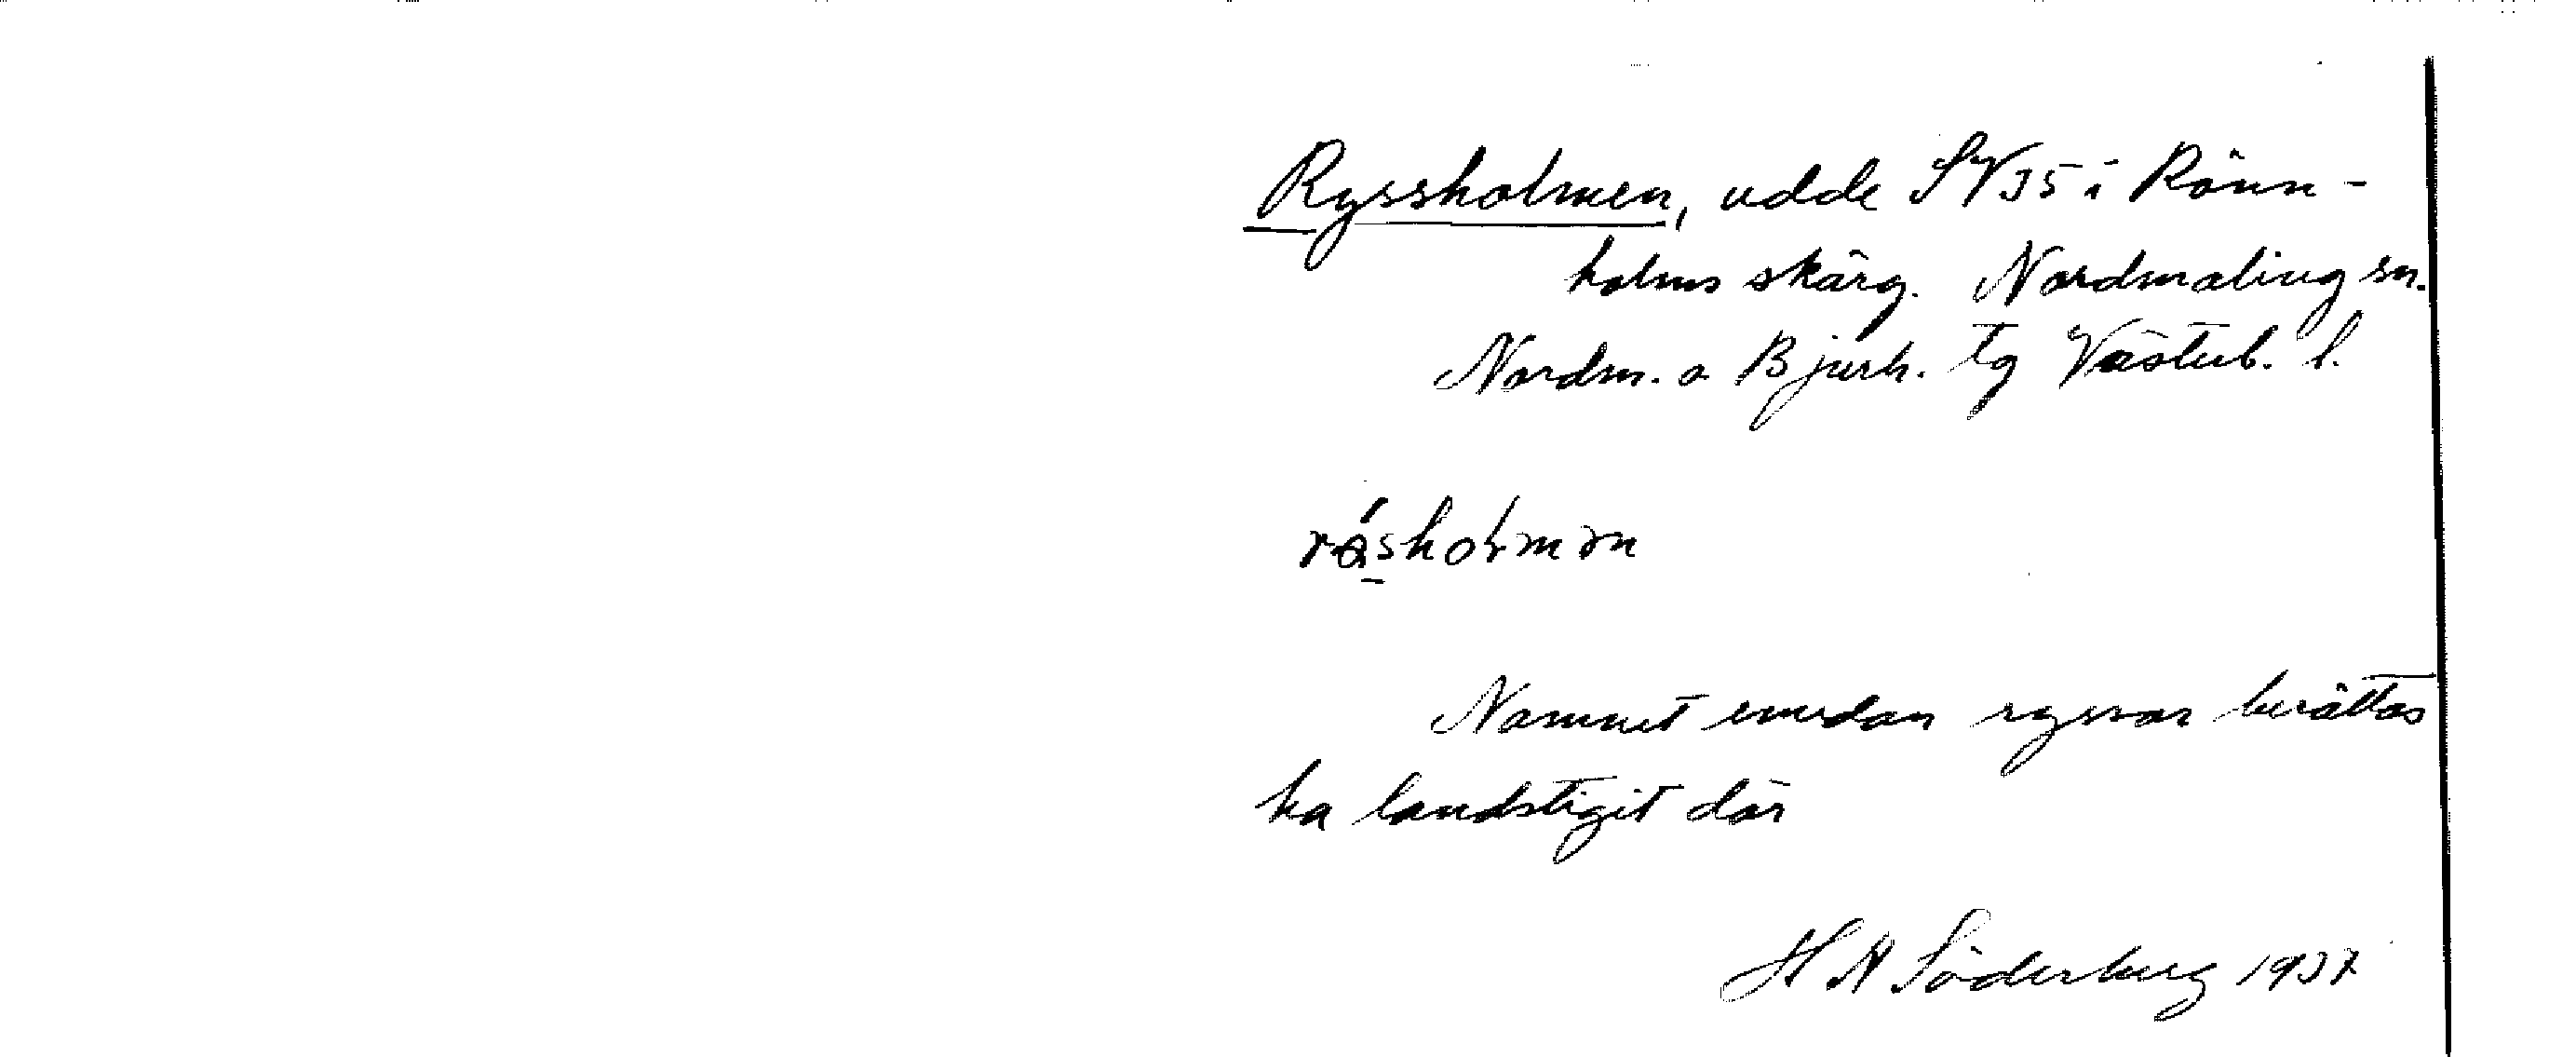 Ryssholmen, udde SV35 i Rönn-
holms skärg. Nordmaling sn.
Nordm. o Bjurh. tg Västerb. l.
Namnet emedan ryssar berättas
ha landstigit där
H A Söderberg 1937